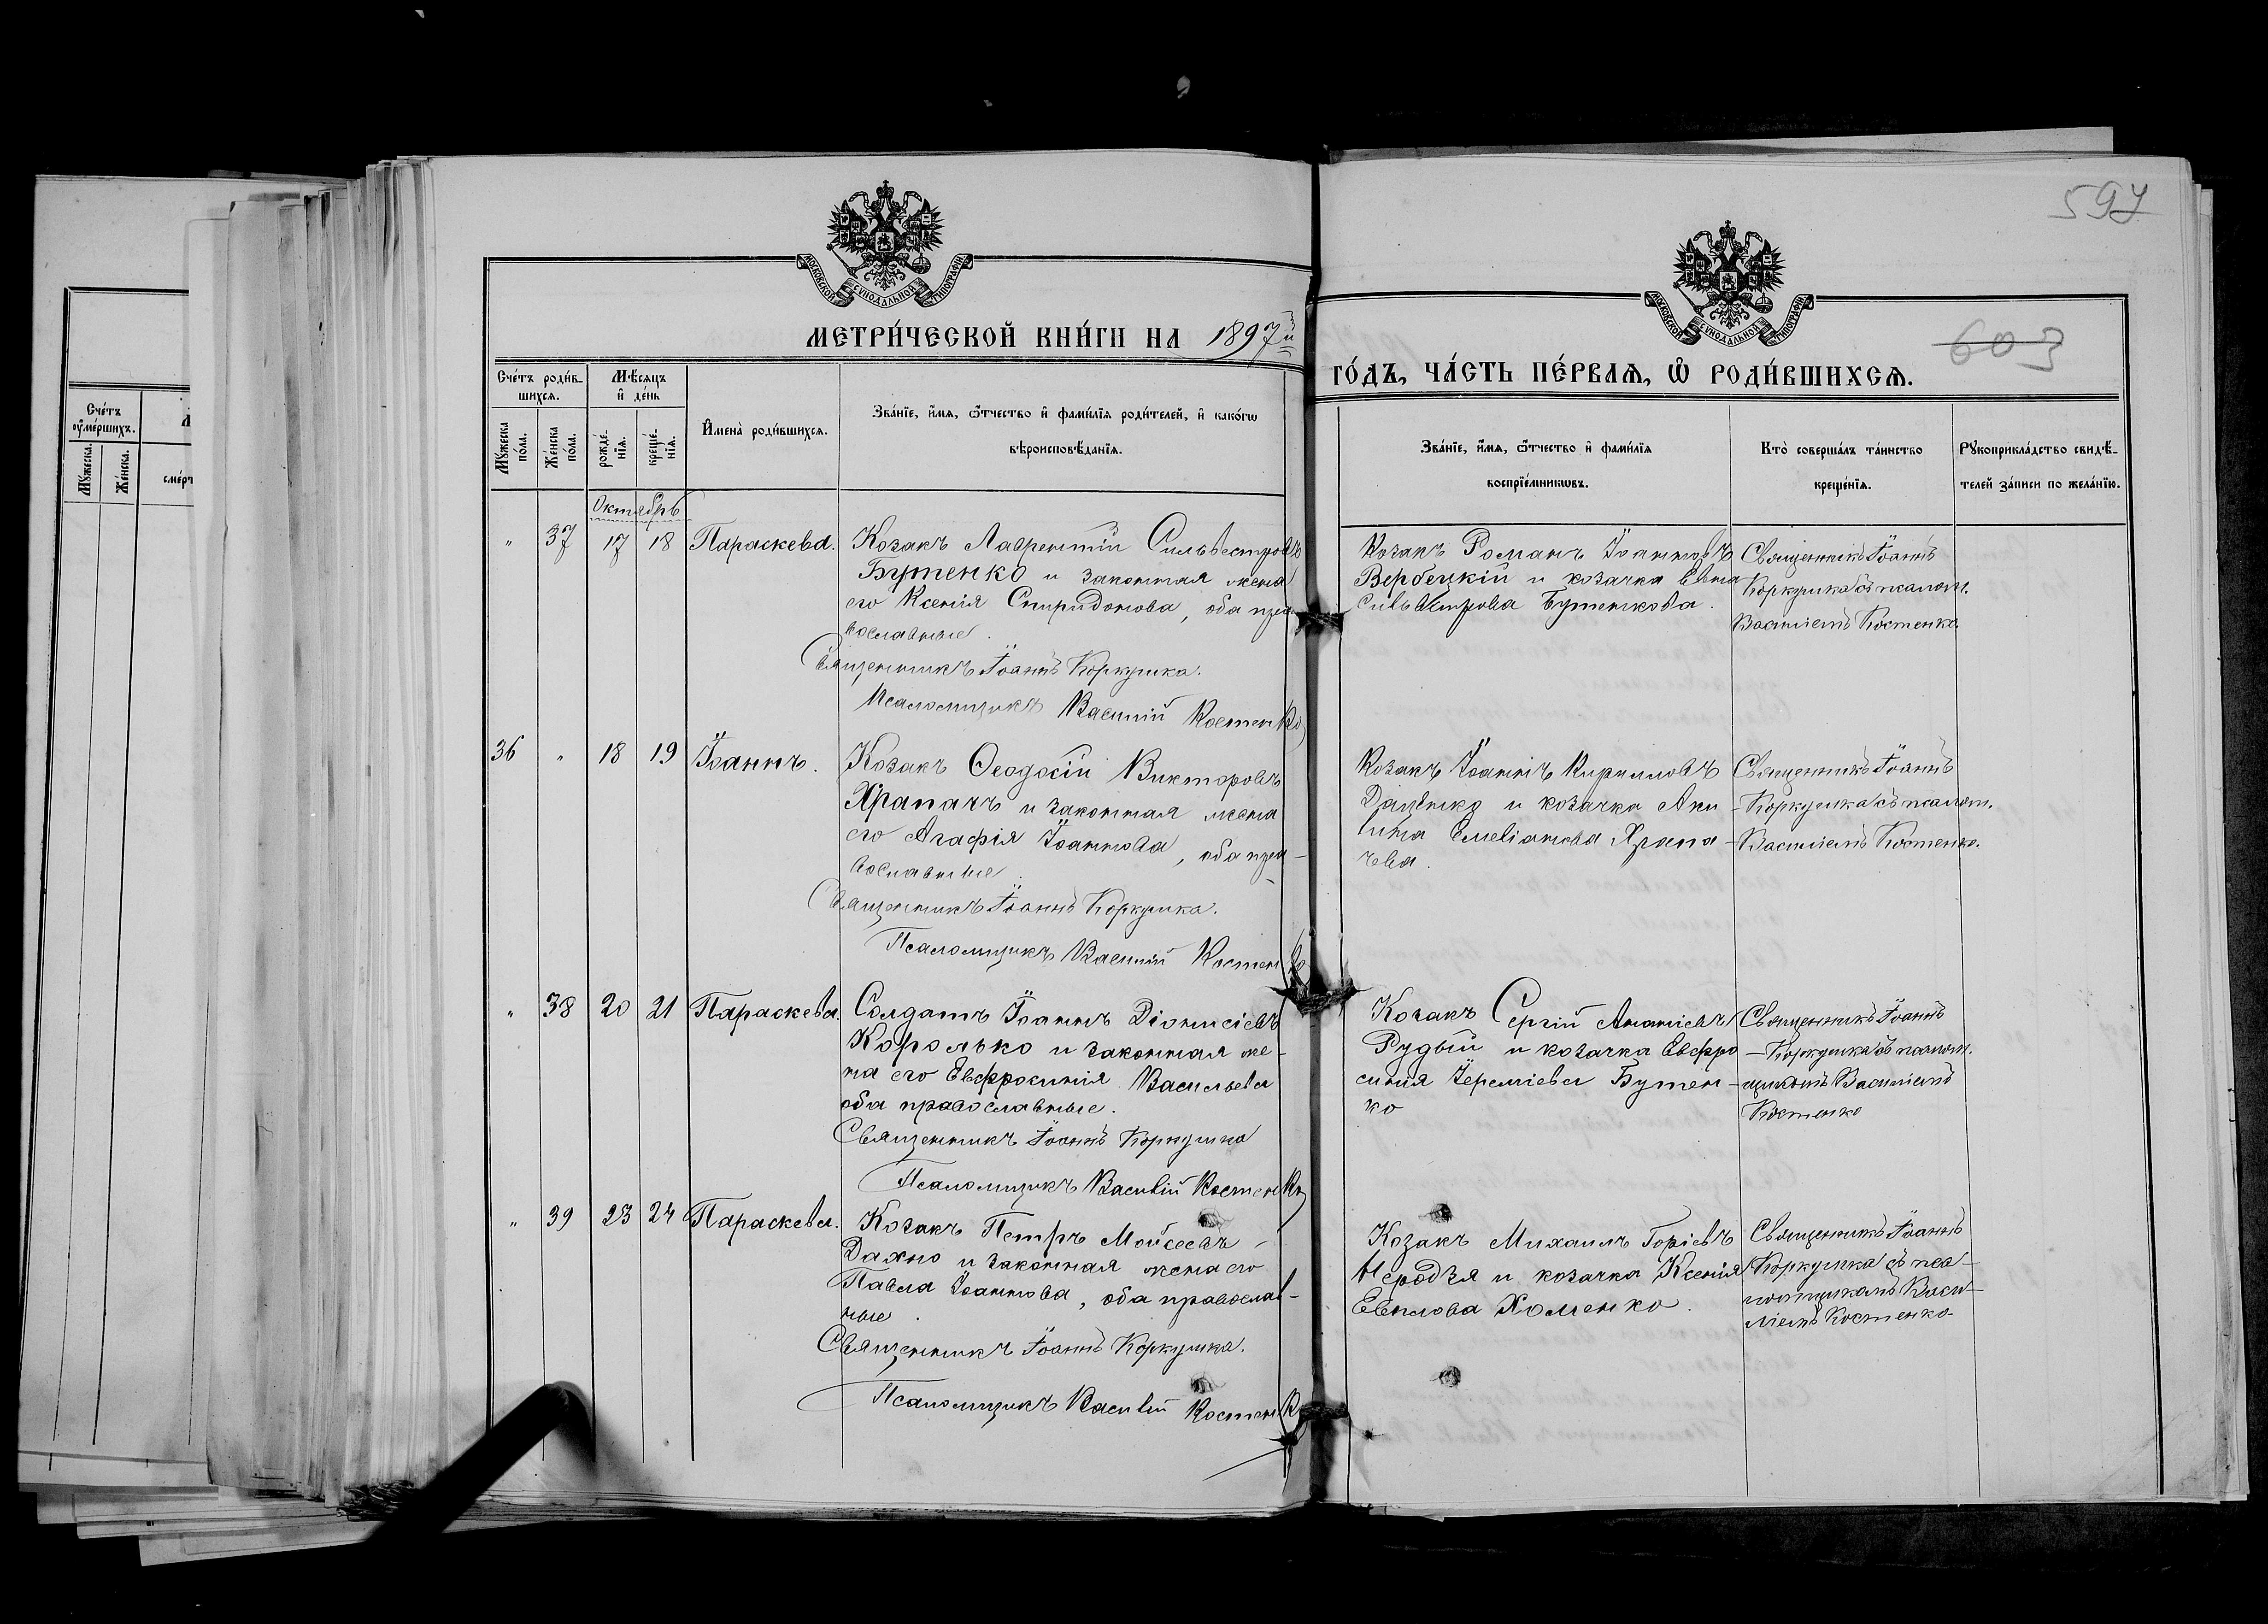 597
603
МОСКОВСКОЙ СУНОДАЛЬНОЙ ТИПОГРАФІИ
МЕТРИ́ЧЕСКОЙ КНИ́ГИ НА 1897й
МОСКОВСКОЙ СУНОДАЛЬНОЙ ТИПОГРАФІИ
ГО́ДЪ, ЧА́СТЬ ПЕ́РВАѦ, Ѿ РОДИ́ВШИХСѦ.
Сче́тъ
оумершихъ.
Мꙋжеска.
Же́нска.
Сче́тъ роди́в-
шихсѧ.
Мꙋжеска
по́ла.
Же́нска
по́ла.
Мѣ́сѧцъ
и҆ де́нь
рожде́-
нїѧ.
креще́-
нїѧ.
И҆мена̀ роди́вшихсѧ.
Зва́нїе, и҆́мѧ, ѻ҆́тчество и҆ фами́лїѧ роди́телей, и҆ како́гѡ
вѣроисповѣ́данїѧ.
Зва́нїе, и҆́мѧ, ѻ҆́тчество и҆ фами́лїѧ
воспрїе́мникѡвъ.
Кто̀ соверша́лъ та́инство
креще́нїѧ.
Рꙋкоприкла́дство свидѣ́-
телей за́писи по жела́нїю.
Октябрь
" 37 17 18 Параскева.
Козакъ Лаврентій Сильвестровъ
Бутенко и законная жена
его Ксенія Спиридонова, оба пра-
вославные.
Священникъ Іоаннъ Коркушка.
Псаломщикъ Василій Костенко
Козакъ Романъ Іоанновъ
Вербецкій и козачка Евга
Сильвестрова Бутенкова.
Священникъ Іоаннъ
Коркушка съ псалом.
Василіемъ Костенко.
36 " 18 19 Іоаннъ.
Козакъ Ѳеодосій Викторовъ
Храпачъ и законная жена
его Агафія Іоаннова, оба пра-
вославные.
Священникъ Іоаннъ Коркушка.
Псаломщикъ Василій Костенко
Козакъ Іоаннъ Кирилловъ
Даценко и козачка Аки-
лина Емеліанова Храпа-
чева.
Священникъ Іоаннъ
Коркушка съ псалом.
Василіемъ Костенко.
" 38 20 21 Параскева.
Солдатъ Іоаннъ Діонисіевъ
Королько и законная же-
на его Евфросинія Васильева
оба православные.
Священникъ Іоаннъ Коркушка
Псаломщикъ Василій Костенко
Козакъ Сергій Ананіевъ
Рудый и козачка Евфро-
синія Іереміева Бутен-
ко
Священникъ Іоаннъ
Коркушка съ псалом-
щикомъ Василіемъ
Костенко
" 39 23 24 Параскева.
Козакъ Петръ Мойсеевъ
Дахно и законная жена его
Павла Іоаннова, оба православ-
ные.
Священникъ Іоаннъ Коркушка.
Псаломщикъ Василій Костенко
Козакъ Михаилъ
и козачка Ксенія
Хоменко.
Священникъ Іоаннъ
Коркушка съ пса-
ломщикомъ Васи-
ліемъ Костенко